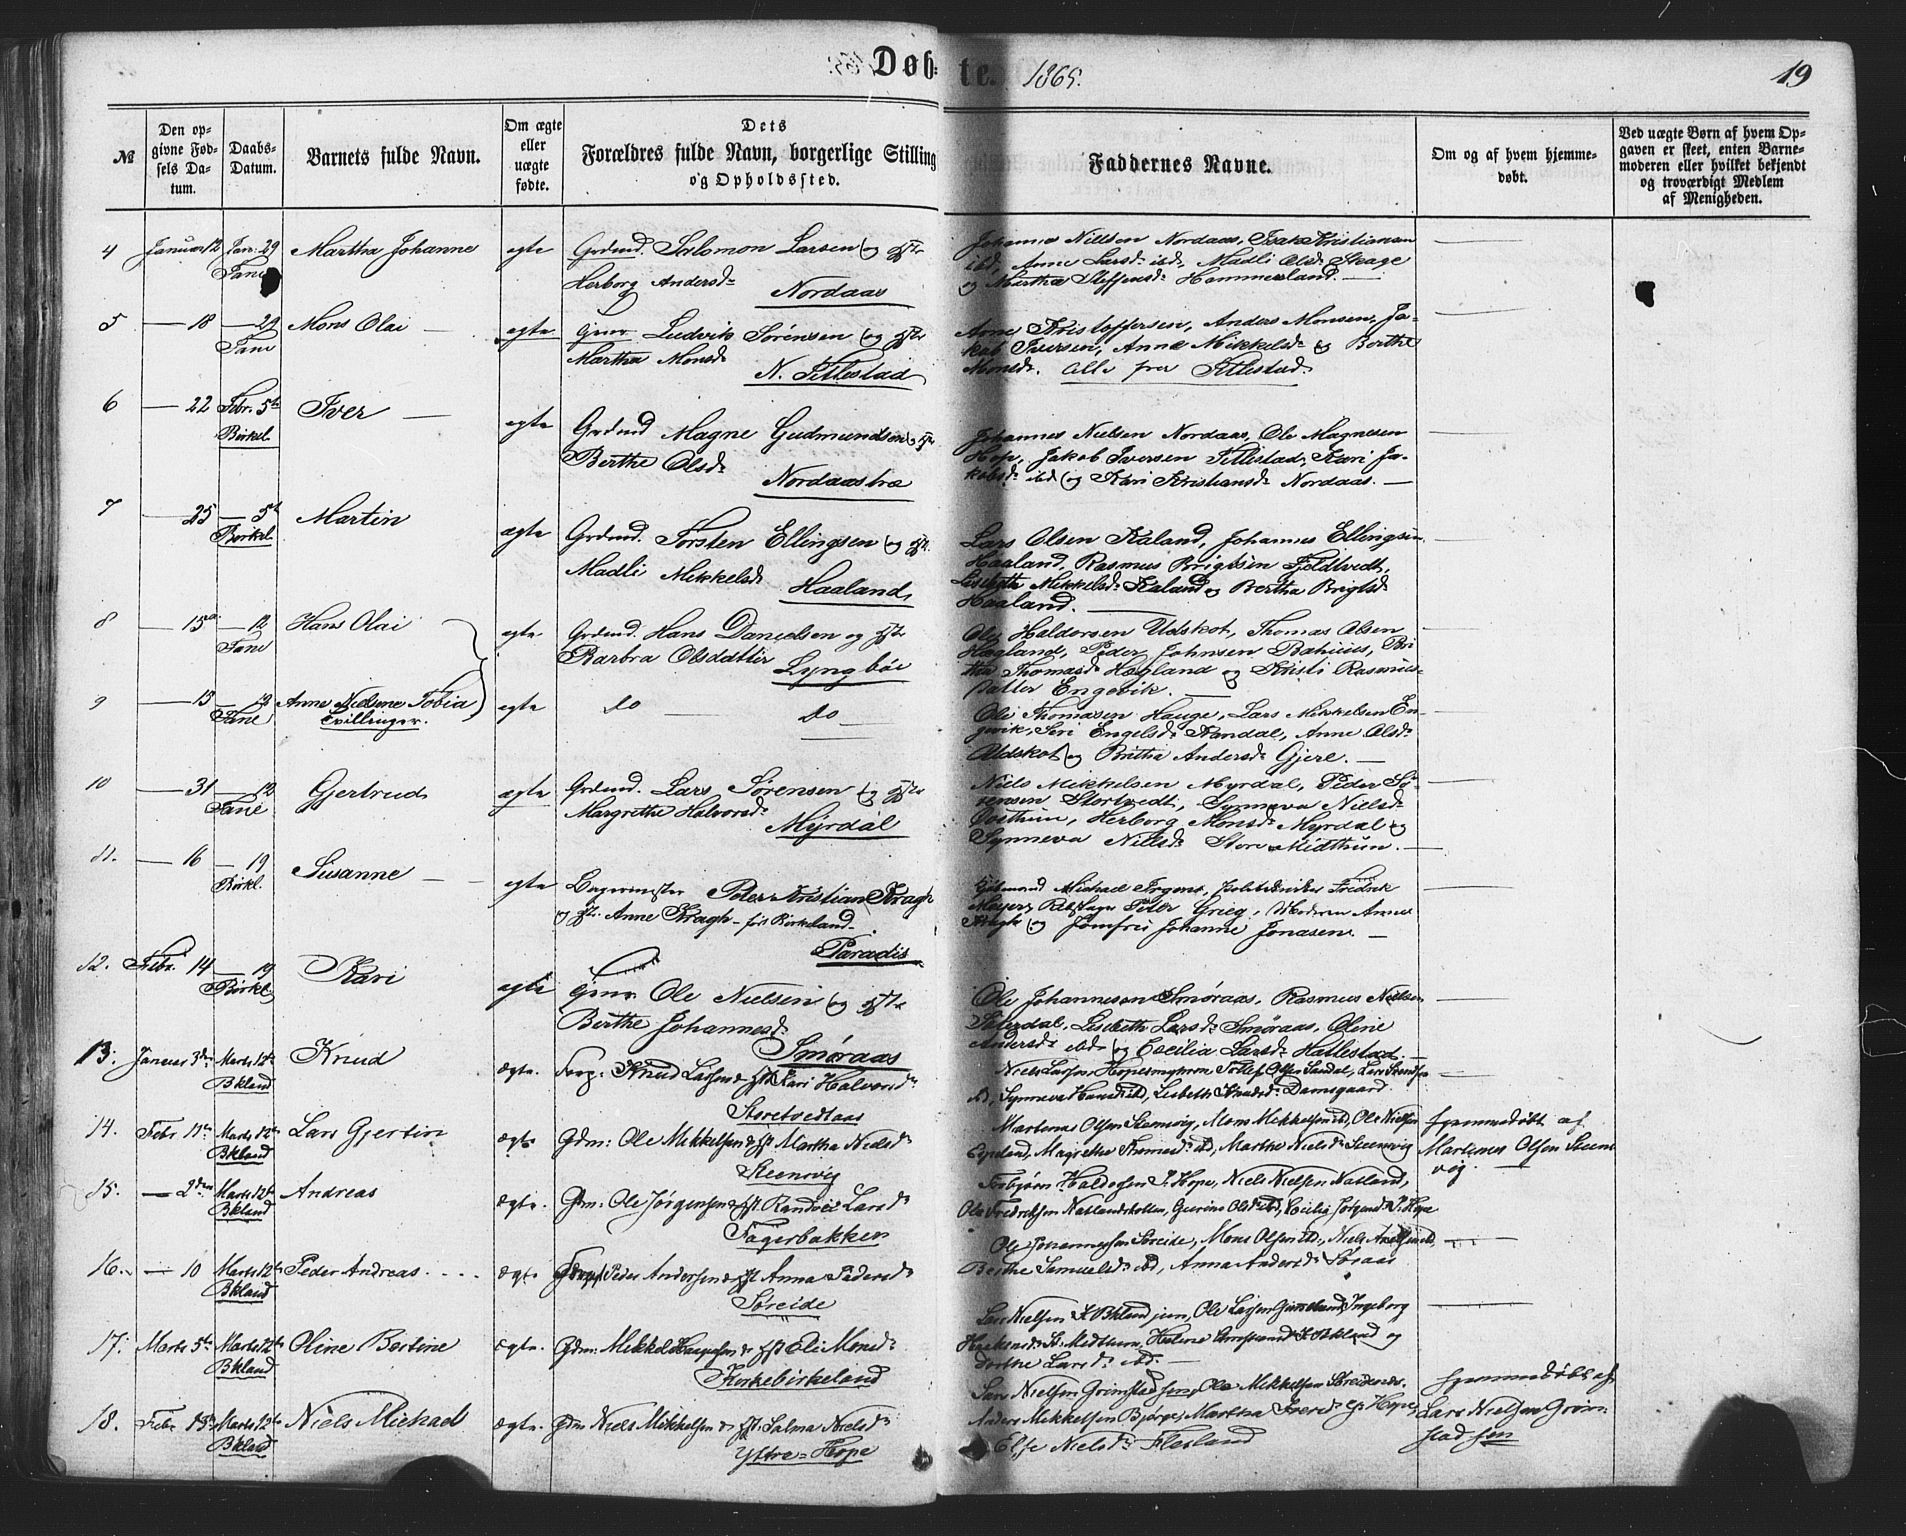 Døb-te. 1865.
19
№
Den opgivne Fødsels Datum.
Daabs-Datum.
Barnets fulde Navn.
Om ægte eller uægte fødte.
Dets Forældres fulde Navn, borgerlige Stilling og Opholdssted.
Faddernes Navne.
Om og af hvem hjemmedøbt.
Ved uægte Børn af hvem Opgaven er skeet, enten Barnemoderen eller hvilket bekjendt og troværdigt Medlem af Menigheden.
4 Januar 12 Jan: 29 Martha Johanne ægte Grdmd. Salomon Larsen og
Fane Herborg Andersd.
Nordaas
Johannes Nillsen Nordaas, Isak Kristiansen
ibd, Anne Larsd. ibd., Madli Olsd. Skage
og Martha Steffensd. Hammersland. —
5 — 18 — 29 Mons Olai — ægte Ludvik Sørensen og
Fane Martha Monsd.
N. Titlestad
Arne Kristoffersen, Anders Monsen, Ja-
kob Iversen, Anna Mikkelsd. og Berthe
Monsd. Alle fra Titlestad.
6 — 22 Febr. 5te Iver — ægte Grdmd Magne Gudmundsen og
Birkel. Berthe Olsd.
Nordaastræ
Johannes Nielsen Nordaas, Ole Magnesen
Hop, Jakob Iversen Titlestad, Kari Ja-
kobsd. ibd og Kari Kristiansd. Nordaas. —
7 — 25 — 5te Martin ægte Grdmd. Torsten Ellingsen og
Birkel. Madli Mikkelsd.
Haaland
Lars Olsen Kaland, Johannes Ellingsen
Haaland, Rasmus Brigtsen Fjeldtvedt,
Lisbeth Mikkelsd. Kaland og Bertha Brigtsd.
Haaland.
8 — 15 — 12 Hans Olai ægte Grdmd. Hans Danielsen og
Fane Barbra Olsdatter
Lyngbøe
Ole Haldorsen Udskot, Thomas Olsen
Høgland, Peder Johnsen Bahuus, Bri-
tha Thomasd. Høgland og Kristi Rasmus-
datter Engevik. —
9 — 15 — 12 Anne Nielsine Tobia ægte do — do —
Fane Tvillinger.
Ole Thomasen Hauge, Lars Mikkelsen En-
gevik, Siri Engelsd. Kandal, Anne Olsd.
Udskot og Britha Andersd. Gjere. —
10 — 31 — 12 Gjertrud ægte Grdmd. Lars Sørensen og
Fane Margrethe Halvorsd.
Myrdal
Niels Mikkelsen Myrdal, Peder Sø-
rensen Stortvedt, Synneva Nielsd.
Herborg Monsd. Myrdal og
Synneva Nielsd. Store Midthun. —
11. — 16 — 19 Susanne — ægte Peter Kristian Kragh
Birkel. og Anne Kragh — Birkeland —
Paradis
Michael Irgens, Fredrik
Meyer, Peter Grieg, Moderen Anne
Kragh og Jomfru Johanne Jonasen. —
12. Febr. 14 — 19 Kari ægte Ole Nielsen og
Birkel. Berthe Johannesd.
Smøraas
Ole Johannesen Smøraas, Rasmus Nielsen
Lisbeth Larsd. Smøraas, Oline
Andersd. ibd. og Cecilia Larsd. Hatlestad. —
13. Januar 3die Marts 12te Knud ægte. Knud Larsen & Kari Halvorsd.
Bkland
Storetvedtaas
Niels Larsen Olsen Sandal,
ibd, Synneva Hansd. ibd, Lisbeth Knudsd. Damsgaard.
14. Febr Marts 12te Lars Gjertin ægte Gdm: Ole Mikkelsen & Martha Nielsd.
Bkland
Steensvig
Martinus Olsen Steensvig, Mons Mikkelsen ibd, Ole Nielsen
Magrethe Thomasd. ibd, Martha Nielsd. Steensvig
hjemmedøbt af
Martinus Olsen Steens
vig.
15. — 2den Marts 12te Andreas ægte. Gdm: Ole Jørgensen & Randvei Larsd.
Bkland
Fagerbakken
Haldorsen Hope, Niels Nielsen Natland,
Ole Fredriksen Natlandsholten, Olsd. ibd, Cecilia Jørgensd. Hope
16. — 10 Marts 12te Peder Andreas ægte Peder Andersen & Anna Pedersd.
Bkland
Søreide
Ole Johannessen Søreide, Mons Olsen ibd.,
Berthe Samuelsd. ibd, Anna Andersd. Søraas
17. Marts 5te Marts 12te Oline Bertine ægte. Gdm: Mikkel & Eli Monsd.
Bkland
Kirkebirkeland
Lars Nielsen K. Bkland jun, Ole Larsen Ingeborg
St. Midthun, K. Bkland og
Dorthe Larsd. ibd. —
18. Febr Marts 12te Niels Michael ægte. Gdm Niels Mikkelsen & Salma Nielsd.
Bkland
Ytre-Hope
Lars Nielsen Grimstad sen, Ole Mikkelsen
Anders Mikkelsen Bjørge, Martha Hope,
Else Nielsd. Flesland
hjemmedøbt af
Lars Nielsen Grim-
stad sen